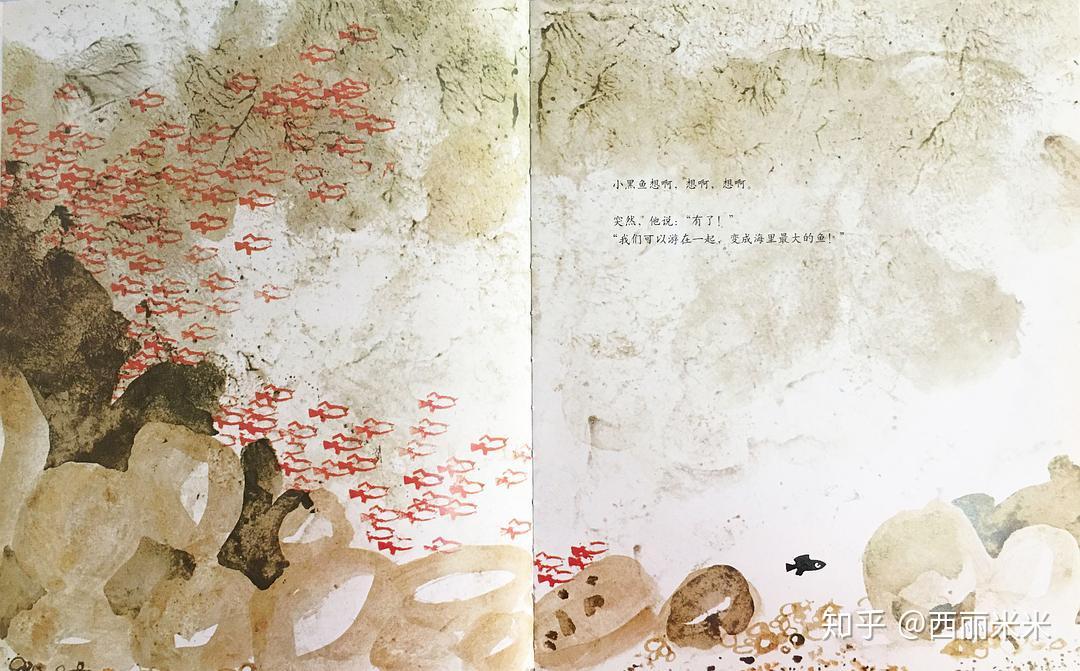 小黑鱼想啊，想啊，想啊。
突然，他说：“有了！”
“我们可以游在一起，变成海里最大的鱼！”
知乎 @西丽米米